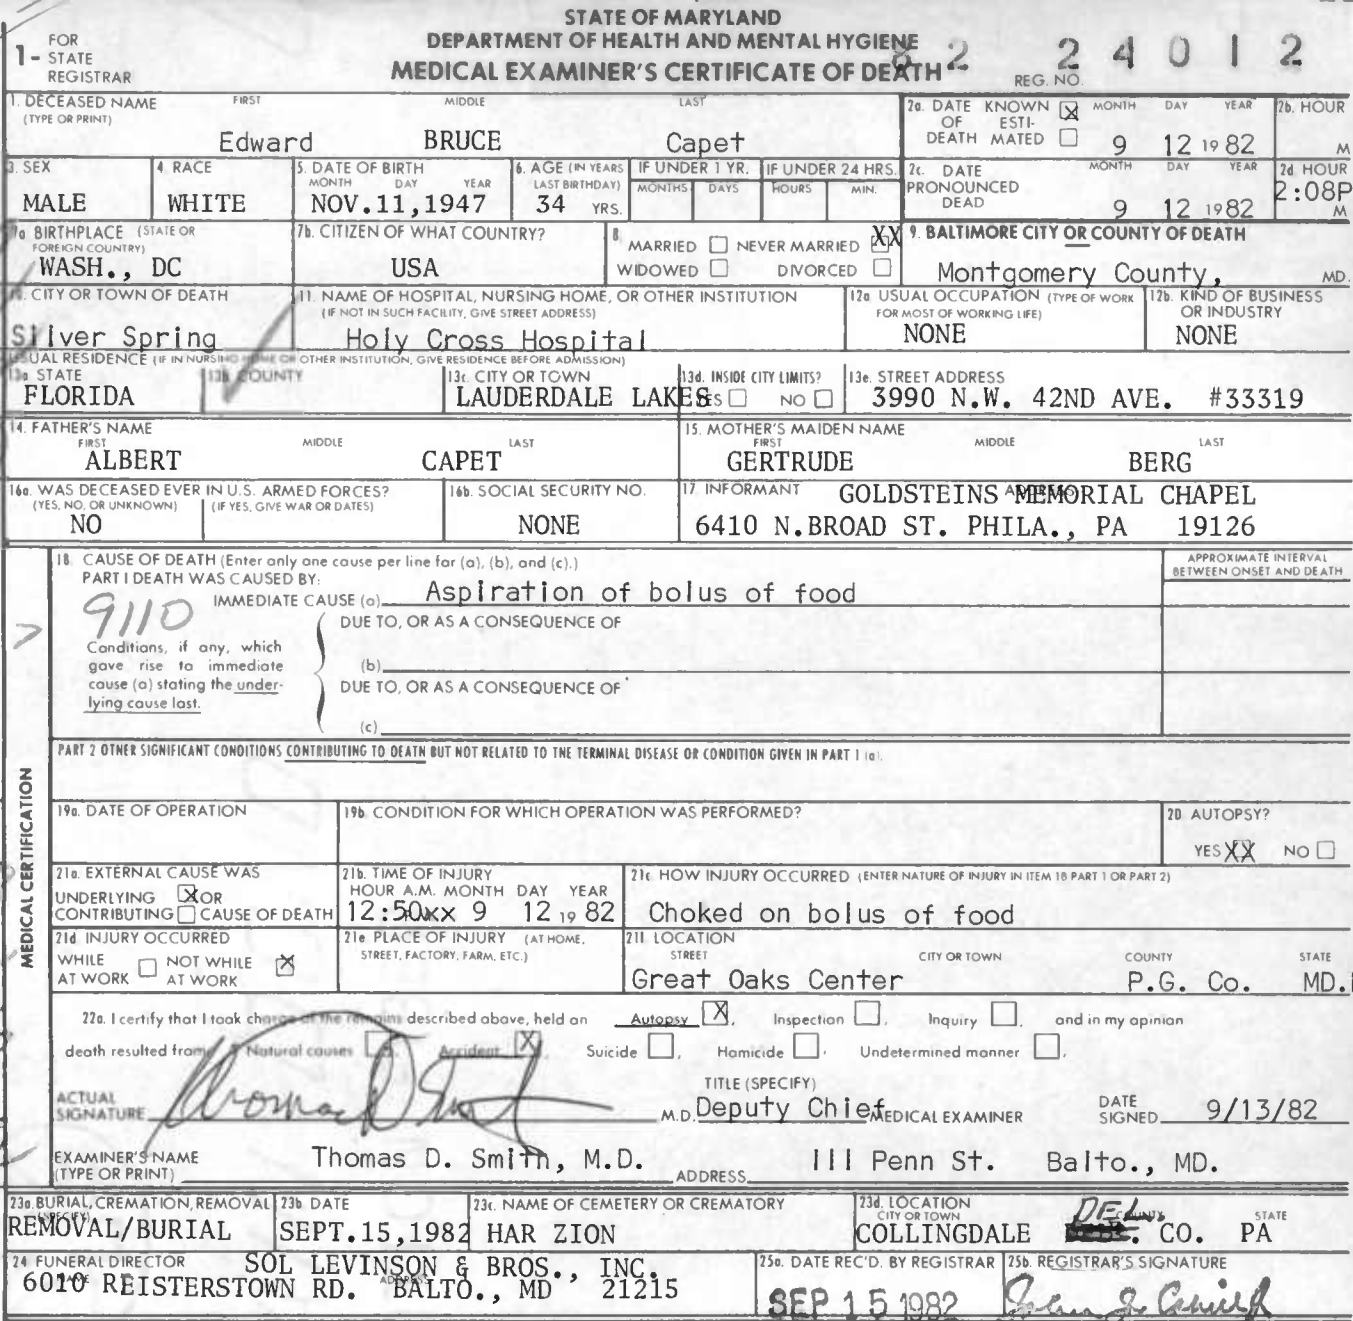 STATE OF MARYLAND
DEPARTMENT OF HEALTH AND MENTAL HYGIENE
MEDICAL EXAMINER'S CERTIFICATE OF DEATH
1- FOR STATE REGISTRAR
REG. NO. 82 24012
1. DECEASED NAME (TYPE OR PRINT) FIRST MIDDLE LAST
Edward BRUCE Capet
2a. DATE OF DEATH KNOWN X ESTIMATED MONTH DAY YEAR
9 12 1982
2b. HOUR M
3. SEX MALE
4. RACE WHITE
5. DATE OF BIRTH MONTH DAY YEAR
NOV.11,1947
6. AGE (IN YEARS LAST BIRTHDAY) 34 YRS.
IF UNDER 1 YR. MONTHS DAYS
IF UNDER 24 HRS. HOURS MIN.
2c. DATE PRONOUNCED DEAD MONTH DAY YEAR
9 12 1982
2d HOUR 2:08P M
7a BIRTHPLACE (STATE OR FOREIGN COUNTRY)
WASH., DC
7b. CITIZEN OF WHAT COUNTRY?
USA
8 MARRIED NEVER MARRIED XX
WIDOWED DIVORCED
9. BALTIMORE CITY OR COUNTY OF DEATH
Montgomery County, MD.
10. CITY OR TOWN OF DEATH
Silver Spring
11. NAME OF HOSPITAL, NURSING HOME, OR OTHER INSTITUTION
(IF NOT IN SUCH FACILITY, GIVE STREET ADDRESS)
Holy Cross Hospital
12a USUAL OCCUPATION (TYPE OF WORK FOR MOST OF WORKING LIFE)
NONE
12b. KIND OF BUSINESS OR INDUSTRY
NONE
USUAL RESIDENCE (IF IN NURSING HOME OR OTHER INSTITUTION, GIVE RESIDENCE BEFORE ADMISSION)
13a STATE
FLORIDA
13b COUNTY
13c. CITY OR TOWN
LAUDERDALE LAKES
13d. INSIDE CITY LIMITS?
YES NO
13e. STREET ADDRESS
3990 N.W. 42ND AVE. #33319
14. FATHER'S NAME
FIRST MIDDLE LAST
ALBERT CAPET
15. MOTHER'S MAIDEN NAME
FIRST MIDDLE LAST
GERTRUDE BERG
16a. WAS DECEASED EVER IN U.S. ARMED FORCES?
(YES, NO, OR UNKNOWN) (IF YES, GIVE WAR OR DATES)
NO
16b. SOCIAL SECURITY NO.
NONE
17 INFORMANT ADDRESS
GOLDSTEINS MEMORIAL CHAPEL
6410 N.BROAD ST. PHILA., PA 19126
MEDICAL CERTIFICATION
18. CAUSE OF DEATH (Enter only one cause per line for (a), (b), and (c).)
APPROXIMATE INTERVAL BETWEEN ONSET AND DEATH
PART I DEATH WAS CAUSED BY:
IMMEDIATE CAUSE (a) Aspiration of bolus of food
9110
DUE TO, OR AS A CONSEQUENCE OF
Conditions, if any, which gave rise to immediate cause (a) stating the underlying cause last.
(b)
DUE TO, OR AS A CONSEQUENCE OF
(c)
PART 2 OTHER SIGNIFICANT CONDITIONS CONTRIBUTING TO DEATH BUT NOT RELATED TO THE TERMINAL DISEASE OR CONDITION GIVEN IN PART 1 (a).
19a. DATE OF OPERATION
19b. CONDITION FOR WHICH OPERATION WAS PERFORMED?
20 AUTOPSY?
YES XX NO
21a. EXTERNAL CAUSE WAS
UNDERLYING X OR
CONTRIBUTING CAUSE OF DEATH
21b. TIME OF INJURY
HOUR A.M. MONTH DAY YEAR
12:50xx 9 12 19 82
21c HOW INJURY OCCURRED (ENTER NATURE OF INJURY IN ITEM 18 PART 1 OR PART 2)
Choked on bolus of food
21d INJURY OCCURRED
WHILE AT WORK NOT WHILE AT WORK X
21e PLACE OF INJURY (AT HOME, STREET, FACTORY, FARM, ETC.)
21f LOCATION
STREET CITY OR TOWN COUNTY STATE
Great Oaks Center P.G. Co. MD.
22a. I certify that I took charge of the remains described above, held an Autopsy X, Inspection, Inquiry, and in my opinion
death resulted from Natural causes, Accident X, Suicide, Homicide, Undetermined manner.
ACTUAL SIGNATURE Thomas D Smith M.D.
TITLE (SPECIFY) Deputy Chief MEDICAL EXAMINER
DATE SIGNED 9/13/82
EXAMINER'S NAME (TYPE OR PRINT) Thomas D. Smith, M.D.
ADDRESS 111 Penn St. Balto., MD.
23a. BURIAL, CREMATION, REMOVAL (SPECIFY)
REMOVAL/BURIAL
23b. DATE
SEPT.15,1982
23c. NAME OF CEMETERY OR CREMATORY
HAR ZION
23d. LOCATION
CITY OR TOWN COUNTY STATE
COLLINGDALE DEL. CO. PA
24 FUNERAL DIRECTOR
NAME ADDRESS
SOL LEVINSON & BROS., INC.
6010 REISTERSTOWN RD. BALTO., MD 21215
25a. DATE REC'D. BY REGISTRAR
SEP 15 1982
25b. REGISTRAR'S SIGNATURE